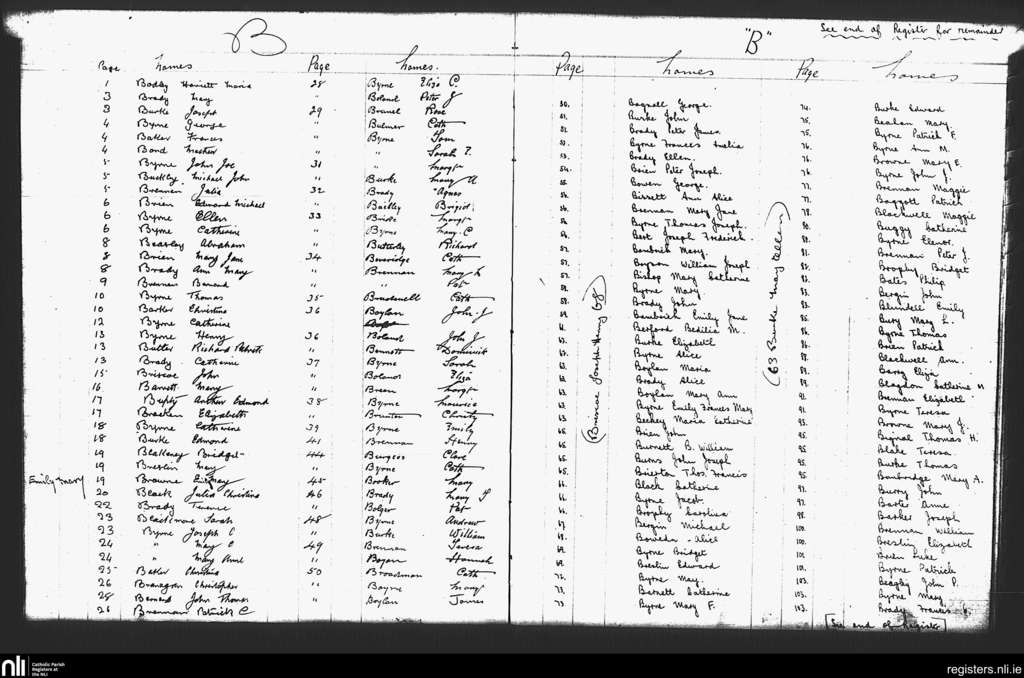 B
Page Names Page Names.
1 Boddy Harriett Maria
3 Brady Mary
3 Burke Joseph
4 Byrne George
4 Barker Frances
4 Bond Matthew
5 Byrne John Joe
5 Buckley Michael John
5 Brennan Julia
6 Brien Edward Michael
6 Byrne Ellen
6 Byrne Catherine
8 Bearley Abraham
8 Brien Mary Jane
8 Brady Ann Mary
9 Brennan Bernard
10 Byrne Thomas
10 Barker Christina
12 Byrne Catherine
13 Byrne Henry
13 Butler Richard Patrick
13 Brady Catherine
15 Briscoe John
16 Barrett Mary
17 Arthur Edmond
17 Bracken Elizabeth
18 Byrne Catherine
18 Burke Edmond
19 Blakeney Bridget
19 Breslin Mary
Emily Mary
19 Browne
20 Black Julia Christina
22 Brady Terence
23 Blackmore Sarah
23 Byrne Joseph C
24 " Mary C
24 " Mary Anne
25 Barker Christina
26 Branagan Christopher
28 Bernard John Thomas
26 Brennan Patrick C
28 Byrne Eliza C.
" Boland Peter J
29 Rose
" Bulmer Cath
" Byrne Tom
" " Sarah T.
31 " Margt
" Burke Mary A
32 Brady Agnes
" Bailey Brigid
33 Margt
" Byrne Mary C
" Butterly Richard
34 Beveridge Cath
" Brennan Mary
" " Pat
35 Cath
36 Boylan John J
36 Boland John J
" Bennett Dominick
37 Byrne Sarah
" Boland Eliza
" Breen Margt
38 Byrne Maurice
" Brunton Christy
39 Byrne Emily
41 Brennan Henry
44 Burgess Clare
" Byrne Cath
45 Booker Mary
46 Brady Mary
" Bolger Pat
48 Byrne Andrew
" Burke William
49 Brennan Teresa
" Bogan Hannah
50 Broadman Cath
" Bayne Mary
" Boylan James
"B"
See end of Register for remainder
Page Names Page Names
50. Bagnall George.
51. Burke John
51. Brady Peter James.
52. Byrne Frances Amelia
53. Brady Ellen.
54. Brien Peter Joseph.
55. Bowen George.
56. Birrett Ann Alice
56. Brennan Mary Jane
56. Byrne Thomas Joseph.
56. Bert Joseph Frederick.
57. Mary.
57. Bryson William Joseph
57. Bishop Mary Catherine
58. Byrne Mary
58. Brady John
59. Emily Jane
61. Berford Bedilia M.
62. Burke Elizabeth
62. Byrne Alice
62. Boylan Maria
62. Brady Alice
63. Boylan Mary Ann
63. Byrne Emily Frances Mary
63. Maria Catherine
65. Brien John
65. Burnett B. William
65. Burns John Joseph
65. Brierton Thos. Francis
66. Black Catherine
66. Byrne Jacob.
66. Brophy Carolina
67. Bergin Michael
68. Bowden Alice
69. Byrne Bridget
69. Breslin Edward
72. Byrne May.
73. Barnett Catherine
73. Byrne Mary F.
(Briscoe Joseph Henry 68)
(63 Burke Mary Ellen)
74. Burke Edward
75. Mary
75. Byrne Patrick F.
76. Byrne Ann M.
76. Browne Mary E.
76. Byrne John J.
77. Brennan Maggie
77. Baggott Patrick
78. Blackwell Maggie
80. Buggy Catherine
81. Byrne Elenor.
81. Brennan Peter J.
82. Brophy Bridget
83. Bates Philip
83. Bergin John
85. Blundell Emily
85. Bury Mary L.
86. Byrne Thomas
86. Brien Patrick
88. Blackwell Ann.
88. Barry Eliza
89. Catherine
91. Brennan Elizabeth
91. Byrne Teresa
95. Browne Mary J.
95. Bignal Thomas H.
95. Blake Teresa
95. Burke Thomas
95. Bainbridge Mary A.
97. Burry John
97. Barker Anne
98. Barker Joseph
100. Brennan William
100. Breslin Elizabeth
101. Luke
101. Byrne Patrick
103. Beagly John P.
103. Byrne Mary
103. Brady Francis
[See end of Register]
nli Catholic Parish
Registers at
the NLI
registers.nli.ie